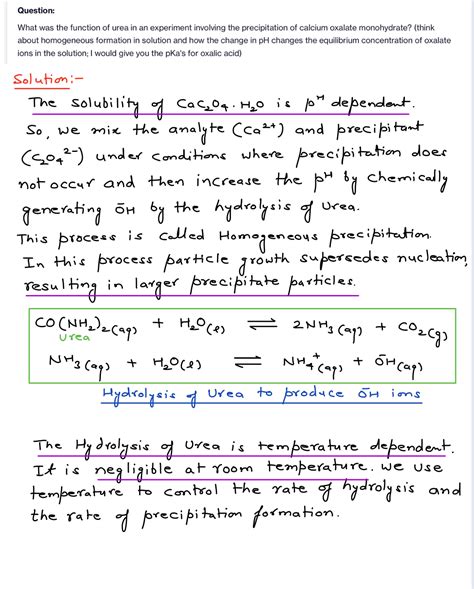 Question:
What was the function of urea in an experiment involving the precipitation of calcium oxalate monohydrate? (think
about homogeneous formation in solution and how the change in pH changes the equilibrium concentration of oxalate
ions in the solution; I would give you the pKa's for oxalic acid)
Solution:-
The solubility of CaC₂O₄.H₂O is pH dependent.
So, we mix the analyte (Ca²⁺) and precipitant
(C₂O₄²⁻) under conditions where precipitation does
not occur and then increase the pH by chemically
generating ŌH by the hydrolysis of urea.
This process is called Homogeneous precipitation.
In this process particle growth supersedes nucleation,
resulting in larger precipitate particles.
CO(NH₂)₂(aq) + H₂O(l) ⇌ 2NH₃(aq) + CO₂(g)
Urea
NH₃(aq) + H₂O(l) ⇌ NH₄⁺(aq) + ŌH(aq)
Hydrolysis of Urea to produce ŌH ions
The Hydrolysis of Urea is temperature dependent.
It is negligible at room temperature. We use
temperature to control the rate of hydrolysis and
the rate of precipitation formation.